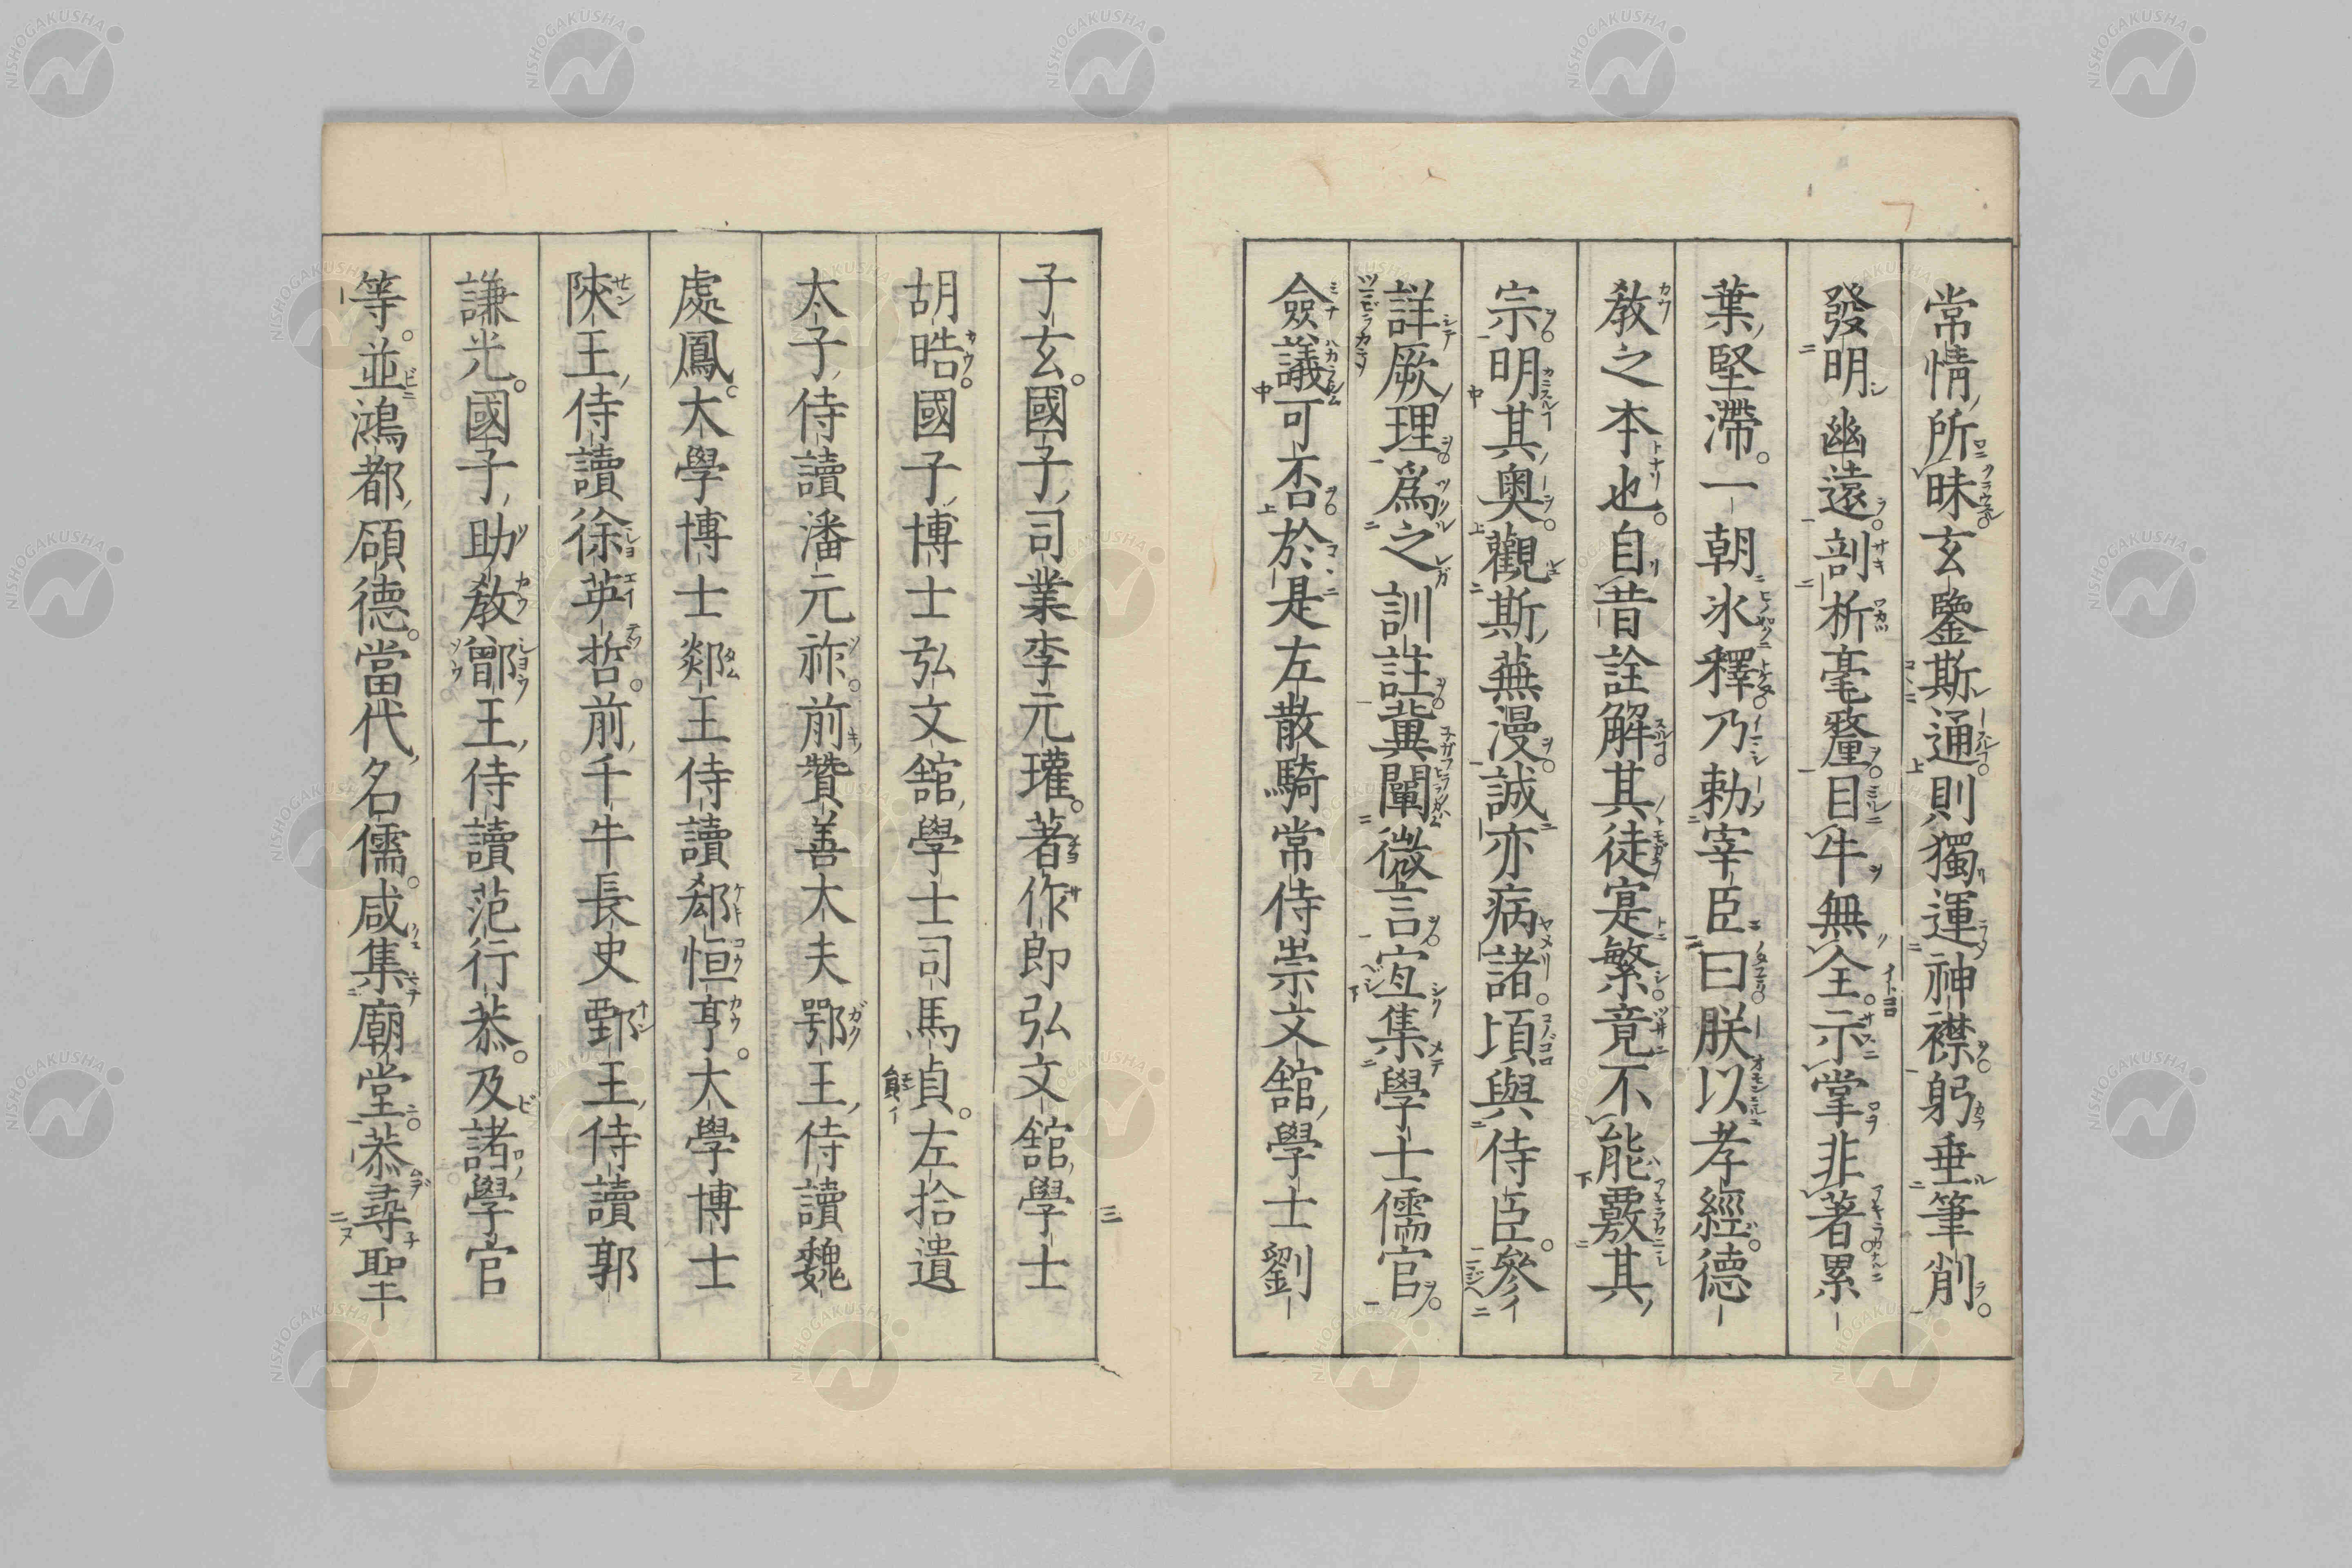 常情所昧玄鑒斯通則獨運神襟躬垂筆削
發明幽遠剖析毫釐目牛無全示掌非著累
葉堅滯一朝氷釋乃勅宰臣曰朕以孝經德
教之本也自昔詮解其徒寔繁竟不能覈其
宗明其奧觀斯蕪漫誠亦病諸頃與侍臣參
詳厥理爲之訓註冀闡微言宜集學士儒官
僉議可否於是左散騎常侍崇文舘學士劉
子玄國子司業李元瓘著作郎弘文舘學士
胡晧國子博士弘文舘學士司馬貞左拾遺
太子侍讀潘元祚前贊善大夫鄂王侍讀魏
處鳳大學博士郯王侍讀郄恒亨大學博士
陝王侍讀徐英哲前千牛長史鄄王侍讀郭
謙光國子助教鄫王侍讀范行恭及諸學官
等並鴻都碩德當代名儒咸集廟堂恭尋聖
三
NISHOGAKUSHA